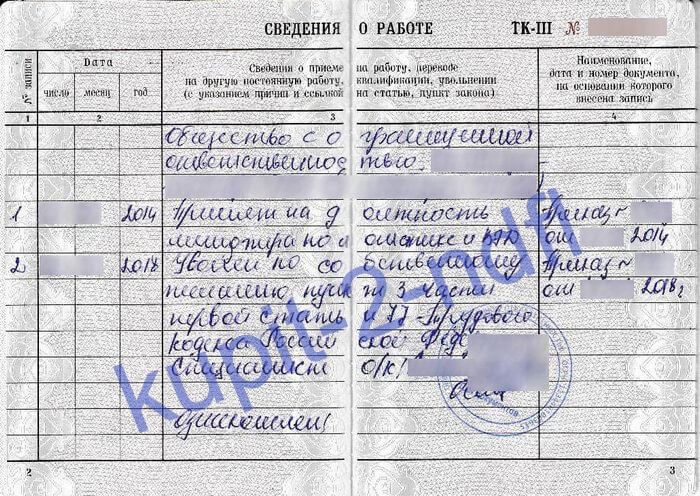 СВЕДЕНИЯ О РАБОТЕ ТК-III №
№ записи
Дата
число месяц год
Сведения о приеме на работу, переводе
на другую постоянную работу, квалификации, увольнении
(с указанием причин и ссылкой на статью, пункт закона)
Наименование,
дата и номер документа,
на основании которого
внесена запись
1 2 3 4
Общество с ограниченной
ответственностью
1 2014 Принят на должность Приказ №
от 2014
2 2018 Уволен по собственному Приказ №
желанию, пункт 3 части от 2018 г
первой статьи 77 Трудового
кодекса Российской Фед
Специалист О/К/
Ознакомлен
kupit-2-ndfl
2 3